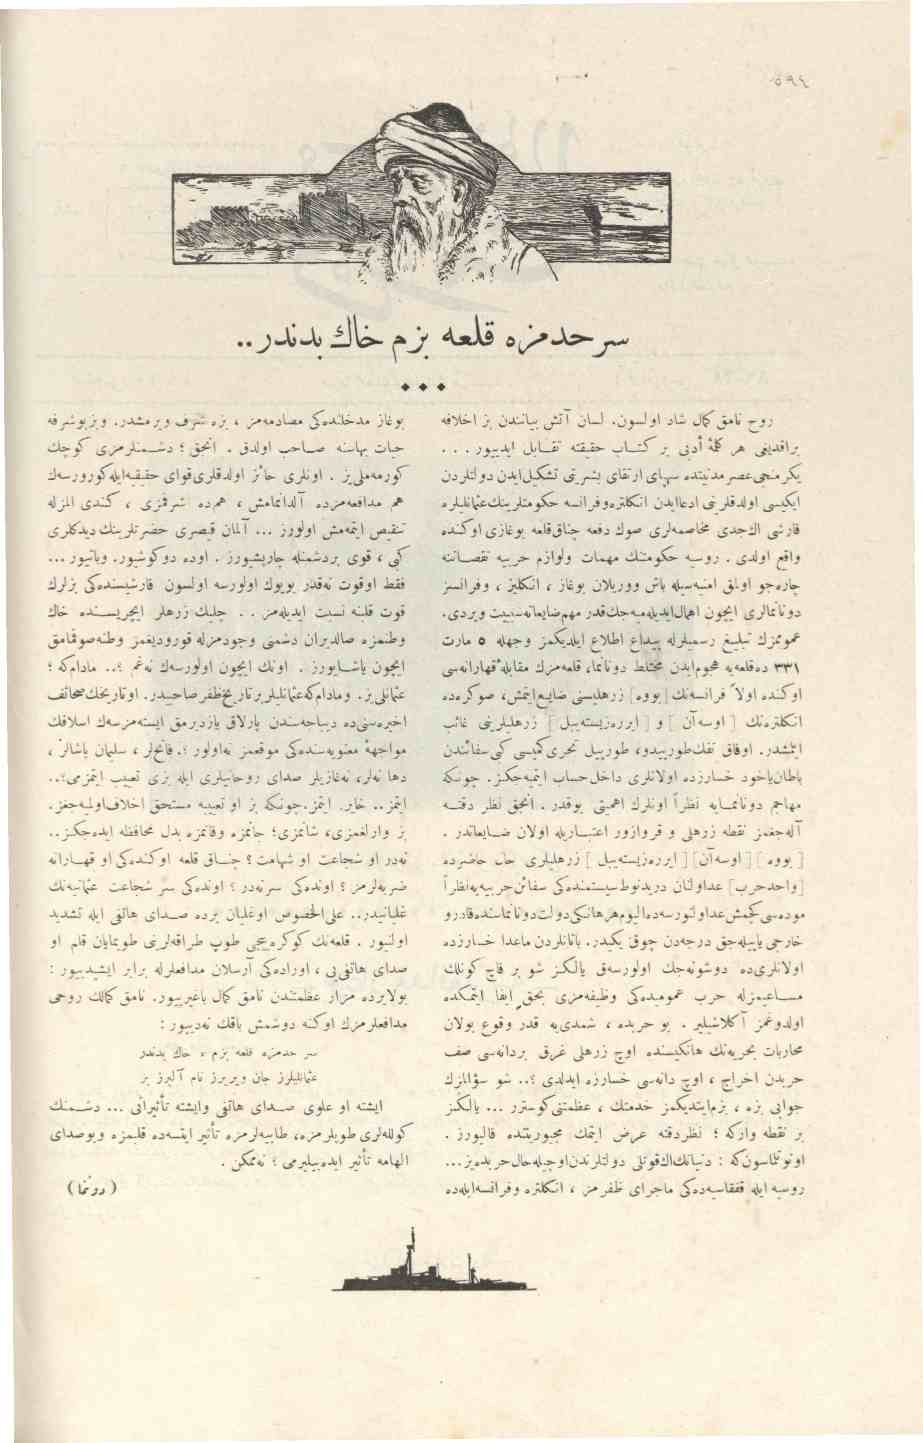 ٥٩٤
سرحدمزه قلعه بزم خاك بدندر..
روح نامق كمال شاد اولسون. لسان آتش بياندن بز اخلافه
براقديغى هر كلمهٔ أدبى بر كتاب حقيقته تقابل ايدييور...
يكرمنجى عصر مدنيتده سهاى ارتقاى بشريتى تشكيل ايدن دولتلردن
ايكيسى اولدقلرينى ادعا ايدن انكلتره وفرانسه حكومتلرينك عثمانليلره
قارشى اك جدى مخاصمه لرى صوك دفعه چناق قلعه بوغازى اوكنده
واقع اولدى. روسيه حكومتنك مهمات ولوازم حربيه نقصاننه
چاره جو اولمق امنيه سيله باش وورىلان بوغاز، انكليز، وفرانسز
دونانمالرى ايچون اهمال ايديله ميه جك قدر مهم ضايعاته سببيت ويردى.
عموممزك تبليغ رسميلرله پيداى اطلاع ايلديكمز وجهله ٥ مارت
٣٣١ ده قلعه يه هجوم ايدن مختلط دونانما، قلعه مزك مقابلهٔ قهارانه سى
اوكنده اولا فرانسه نك [بووه] زرهليسنى ضايع ايتمش، صوكره ده
انكلتره نك [اوسه آن] و [ايررەزيستەبيل] زرهليلرينى غائب
ايتمشدر. اوفاق تفك طورپيدو، طورپيل تحرى كميسى كبى سفائندن
باطان ياخود خسارزده اولانلرى داخل حساب ايتميه جكز. چونكه
مهاجم دونانمايه نظراً اونلرك اهميتى يوقدر. انجق نظر دقته
آله جغمز نقطه زرهلى و قروازور اعتباريله اولان ضايعاتدر.
[بووه] [اوسه آن] [ايررەزيستەبيل] زرهليلرى حال حاضرده
[واحد حرب] عد اولنان دريدنوط سيستمنده كى سفائن حربيه يه نظراً
موده سى كچمش عد اولنورسه ده اليوم هر هانكى دولت دونانماسنده قادرو
خارجى ياپيله جق درجه دن چوق يكيدر. باتانلردن ماعدا خسارزده
اولانلرى ده دوشونه جك اولورسه ق يالكز شو بر قاچ كونلك
مساعيمزله حرب عموميده كى وظيفه مزى بحق ايفا ايتمكده
اولدوغمز آكلاشيلير. بو حربده، شمدى يه قدر وقوع بولان
محاربات بحريه نك هانكيسنده اوچ زرهلى غرق بردانه سى صف
حربدن اخراج، اوچ دانه سى خسارزده ايدلدى؟.. شو سؤالمزك
جوابى بزه، بزم ايتديكمز خدمتك، عظمتنى كوسترر... يالكز
بر نقطه واركه؛ نظر دقته عرض ايتمك مجبوريتنده قاليورز.
اونوتلماسون كه: دنيانك اك قوتلى دولتلرندن اوچيله حال حربده يز...
روسيه ايله قفقاسيه ده كى ماجراى ظفرمز، انكلتره وفرانسه ايله ده
بوغاز مدخلنده كى مصادمه مز، بزه شرف ويرمشدر. و بز بو شرفه
حيات بهاسنه صاحب اولدق. انجق؛ دشمنلرمزى كوچك
كورمه ملى يز. اونلرى حائز اولدقلرى قواى حقيقيه ايله كورورسه ك
هم مدافعه مزده آلدانمامش، هم ده شرفمزى، كندى المزله
تنقيص ايتمه مش اولورز... آلمان قيصرى حضرتلرينك ديدكلرى
كبى، قوى بر دشمنله چارپيشيورز. اوده دوكوشيور. و يانيور...
فقط او قوت نه قدر بويوك اولورسه اولسون قارشيسنده كى بزلرك
قوت قلبنه نسبت ايديله مز.. چليك زرهلر ايچريسنده خاك
وطنمزه صالديران دشمنى وجودمزله قوروديغمز وطنه صوقمامق
ايچون ياشايورز. اونك ايچون اولورسه ك نه غم؟.. مادام كه؛
عثمانلى يز. و مادام كه عثمانليلر بر تاريخ ظفر صاحبيدر. او تاريخك صحائف
اخيره سنى ده ديباجه سندن پارلاق يازديرمق ايسته مزسه ك اسلافك
مواجههٔ معنويه سنده كى موقعمز نه اولور؟. فاتحلر، سليمان پاشالر،
دها نه لر، نه غازيلر صداى روحانيلرى ايله بزى تعييب ايتمزمى؟..
ايتمز.. خاير. ايتمز. چونكه بز او تعييبه مستحق اخلاف اولميه جغز.
بز وارلغمزى، شانمزى؛ جانمزه وقانمزه بدل محافظه ايده جكز..
نه در او شجاعت او شهامت؟ چناق قلعه اوكنده كى او قهارانه
ضربه لرمز؟ اونده كى سر نه در؟ اونده كى سر شجاعت عثمانيه نك
غليانيدر.. على الخصوص او غليان برده صداى هاتفى ايله تشديد
اولنيور. قلعه نك كوكره ييجى طوپ طراقه لرينى طويمايان قلم او
صداى هاتفى يى، اوراده كى آرسلان مدافعلرله برابر ايشيدييور:
بولايرده مزار عظمتندن نامق كمال باغيرييور. نامق كمالك روحى
مدافعلرمزك اوكنه دوشمش باقك نه دييور:
سر حدمزه قلعه بزم خاك بدندر
عثمانليلرز جان ويريرز نام آليرز بز
ايشته او علوى صداى هاتفى و ايشته تأثيراتى... دشمنك
كولله لرى طوپلرمزه، طابيه لرمزه تأثير ايتسه ده قلبمزه و بو صداى
الهامه تأثير ايده بيليرمى؟ نه ممكن.
(رونما)